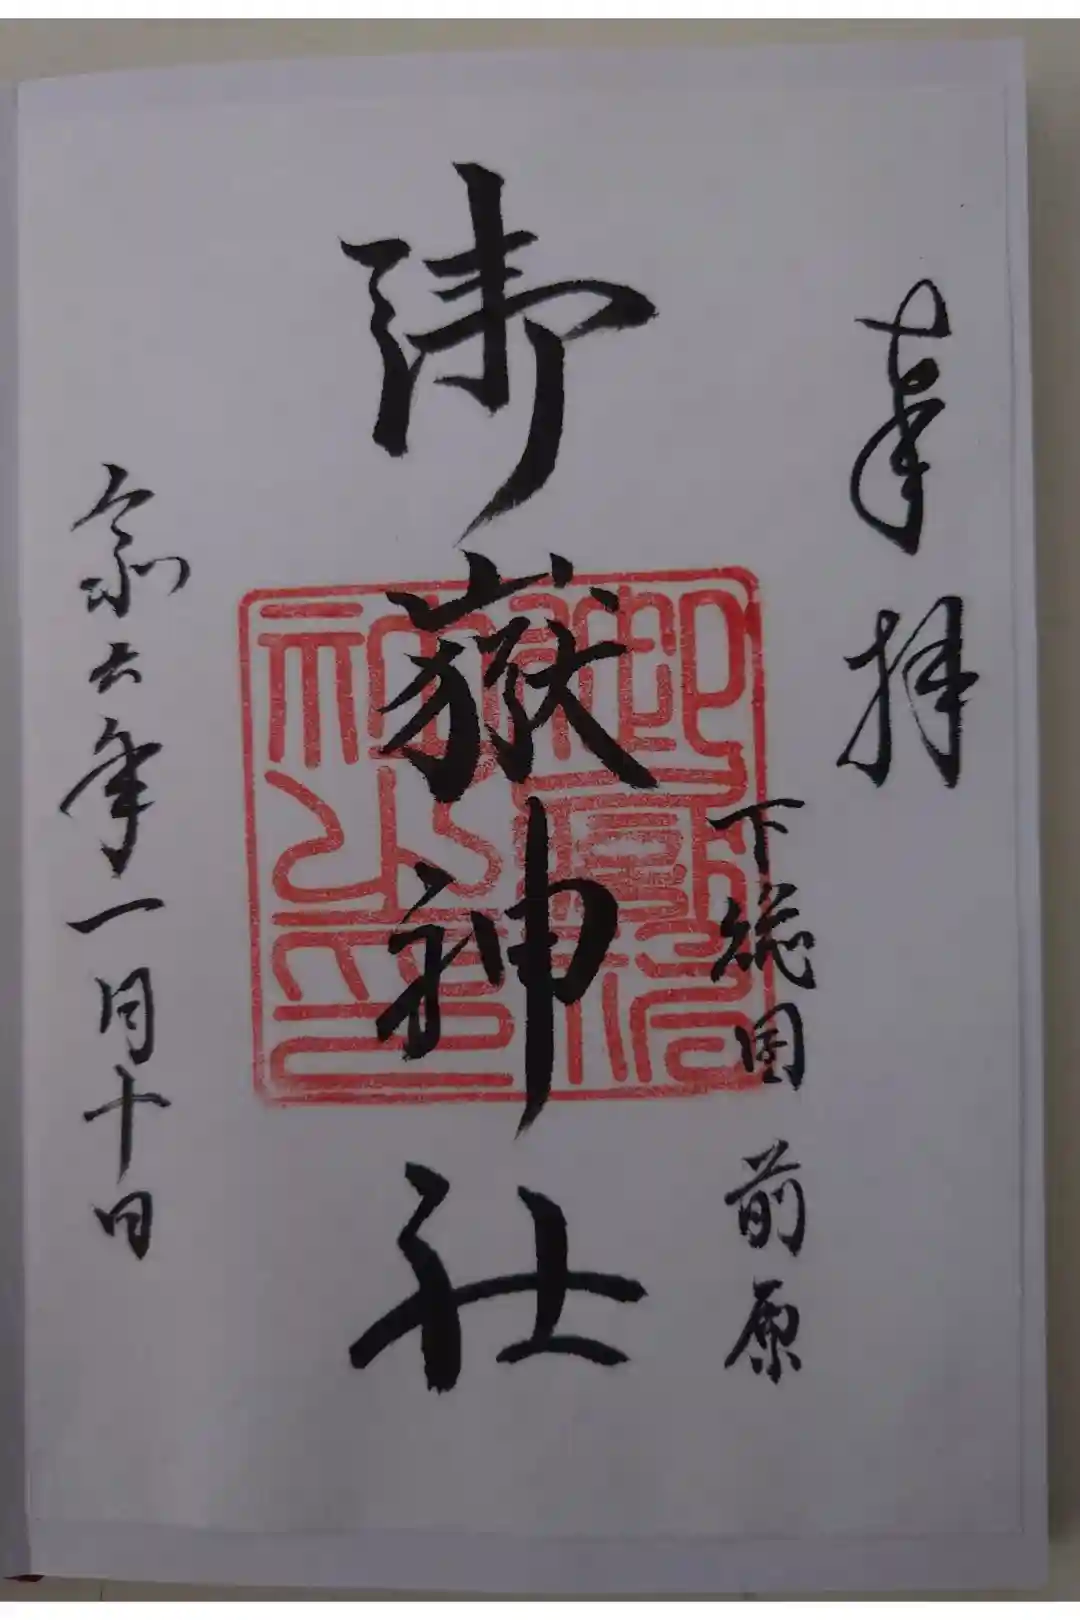 奉拝
下総国 前原
御嶽神社
令和六年一月十日